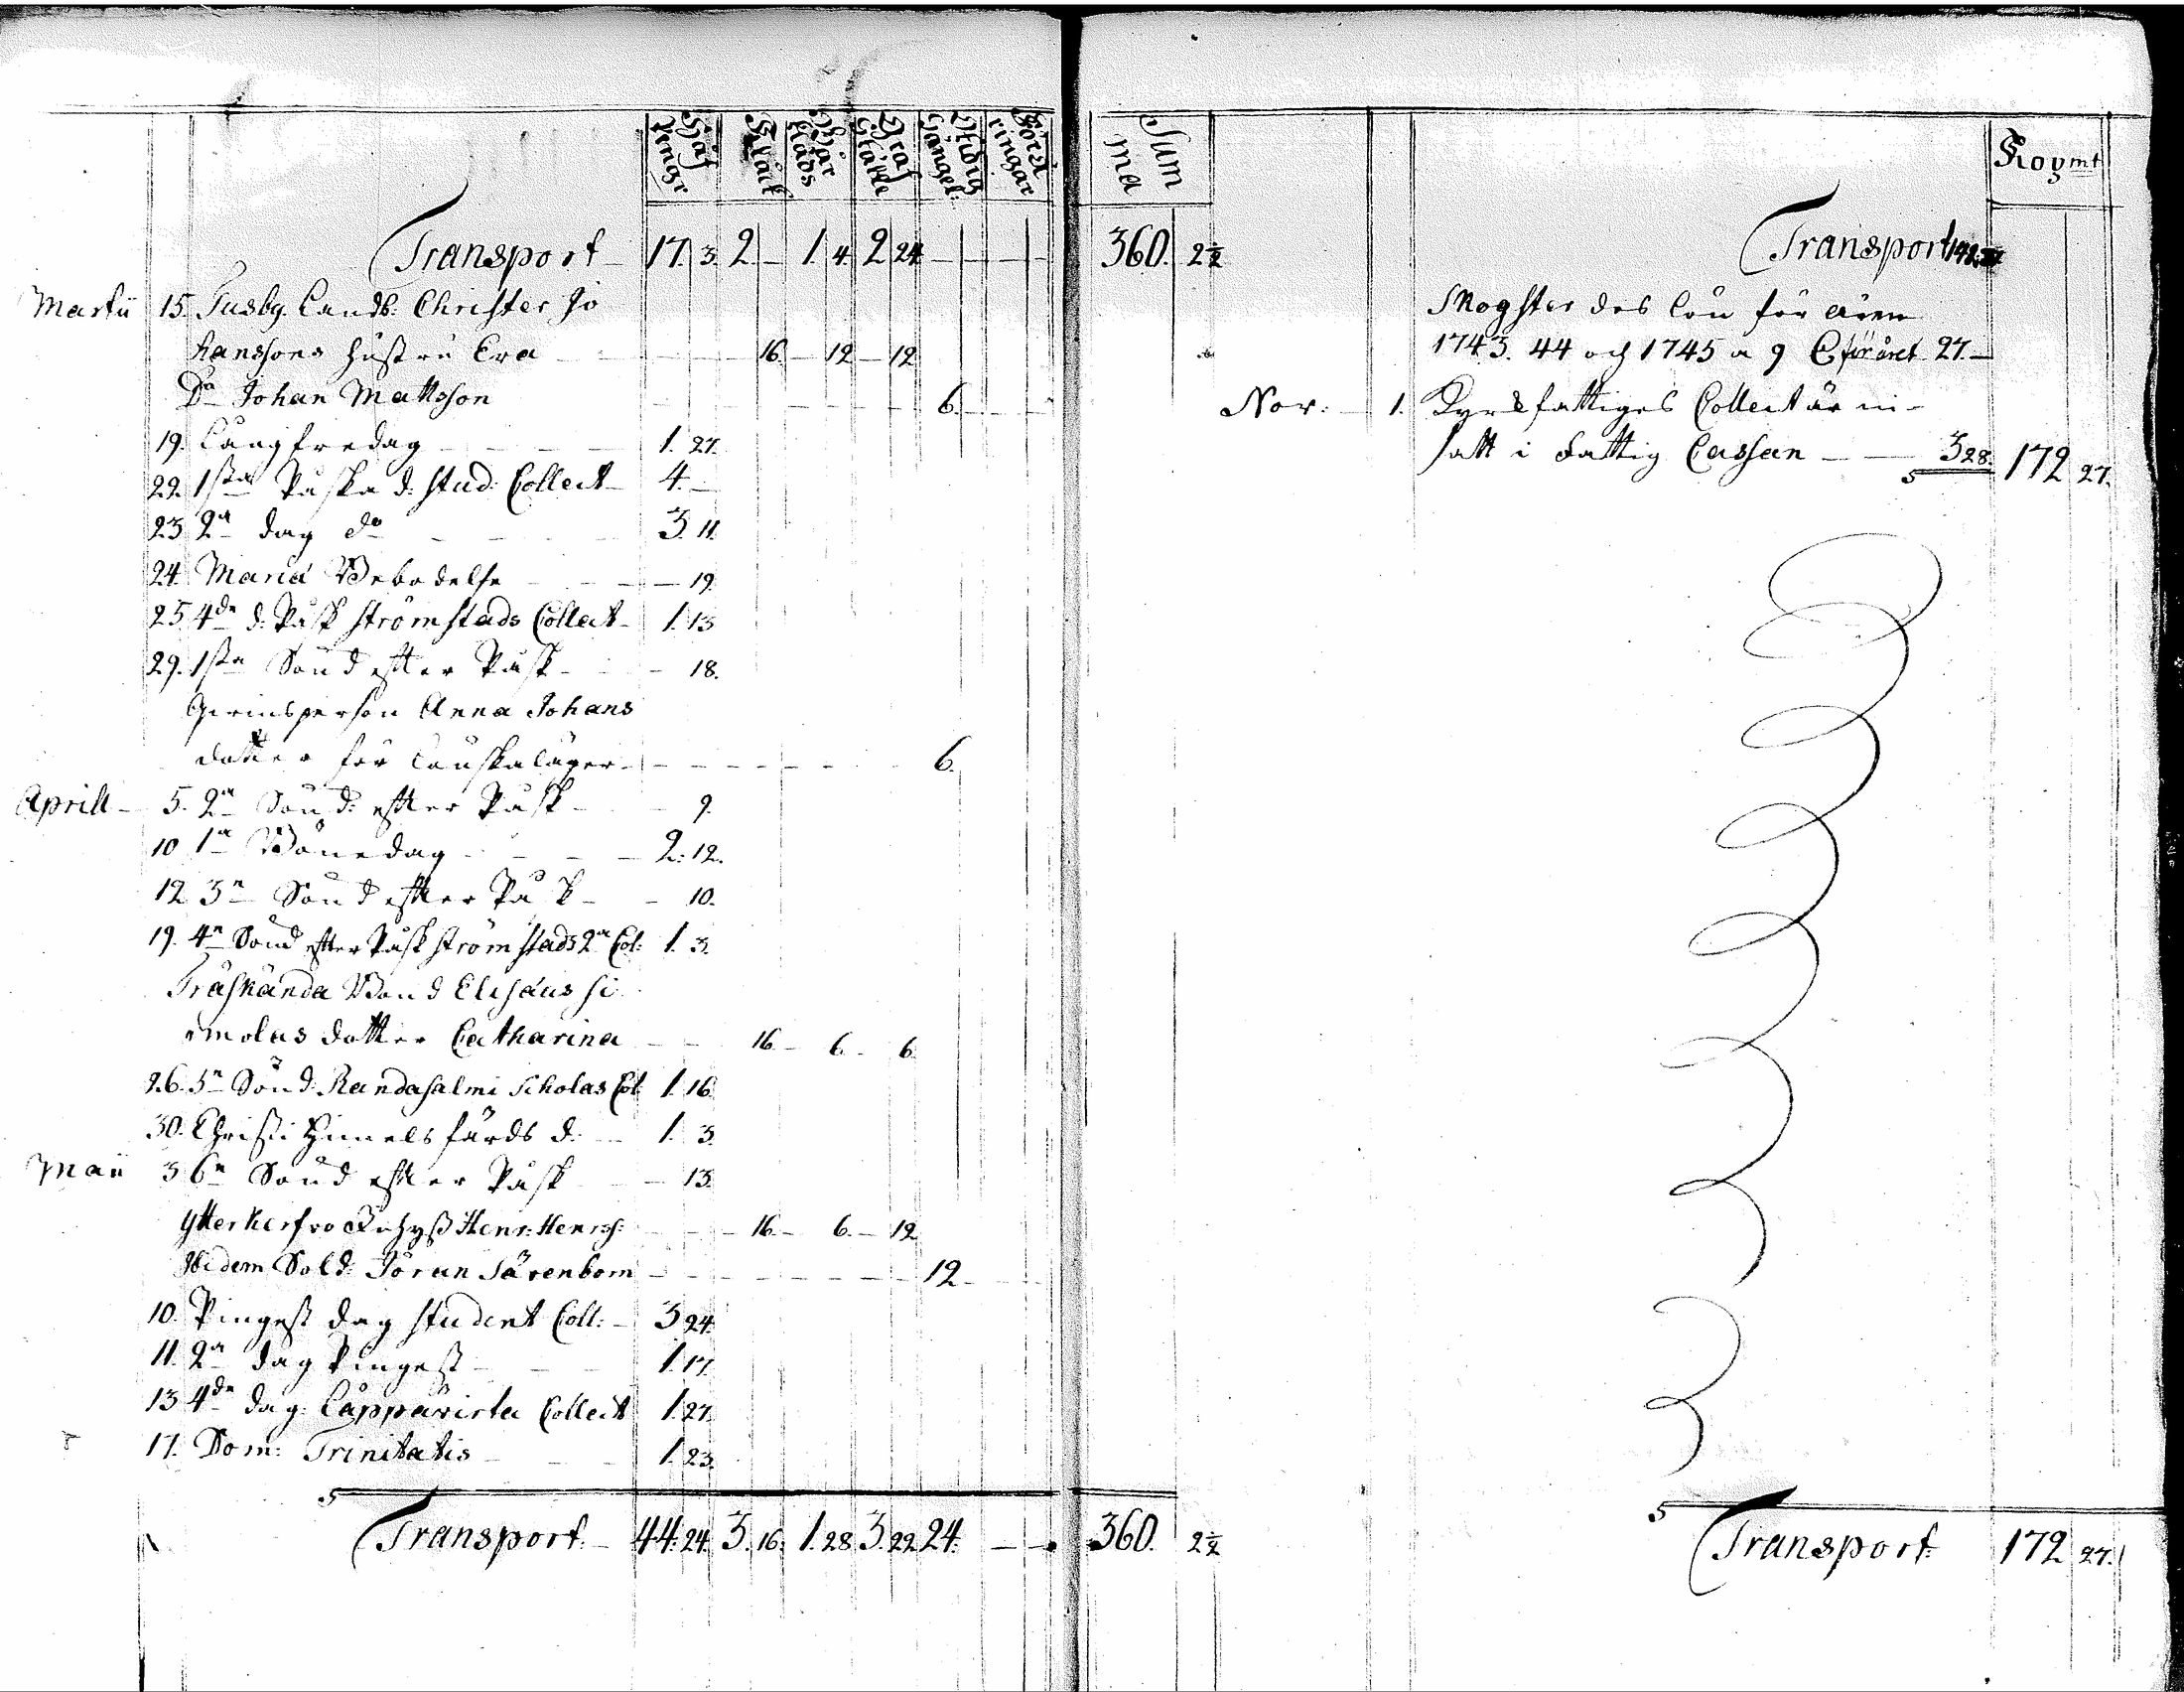 Håf Pengr | Klåck | Bår kläds | Graf Ställe | Ståck gångel: | Förä ringar
Transport 17. 3. 2. — 1. 4. 2 24 — — — —
Martii 15. Tusby Landb: Christer Jo
hanssons hustru Eva — 16. — 12 — 12
Do Johan Mattsson — 6.
19. Långfredag — 1. 27.
22. 1sta Påska d: stud: Collect — 4. —
23 2a dag do — 3. 11.
24. Mariæ Bebodelse — 19.
25 4de d: Påsk Strömstads Collect — 1. 13
29. 1sta Sönd efter Påsk — 18.
Qvinsperson Anna Johans
dotter för Lönskaläger — 6.
Aprill — 5. 2a Sönd: efter Påsk — 9.
10 1a Bönedag — 2: 12.
12 3e Sönd efter Påsk — 10.
19. 4e Sönd efter Påsk Strömstads 2a Col: 1. 3.
Träskända Bond Elisæus Si
molas dotter Catharina — 16. — 6. — 6.
26. 5e Sönd: Randasalmi Scholas Col 1. 16.
30. Christi Himelsfärds d: — 1. 3.
Maii 3 6e Sönd efter Påsk — 13.
Ytterkerfvo Henr: Henrss: — 16. — 6. — 12
Ibidem Sold: Jöran — 12
10. Pingest dag student Coll: — 3 24.
11. 2a dag Pingest — 1. 17.
13 4de dag: Lappvirta Collect 1. 27.
17. Dom: Trinitatis — 1. 23.
Transport — 44: 24. 3. 16. 1. 28 3. 22 24. — —
Sum ma
360. 2½
360. 2½
Koymt
Transport
Klockstes des lön för åren
1743. 44 och 1745 a 9 för året 27. —
Nov: — 1. Kyrkfattiges Collect är in-
satt i Fattig Cassan — 3 28. 172 27.
Transport 172 27.